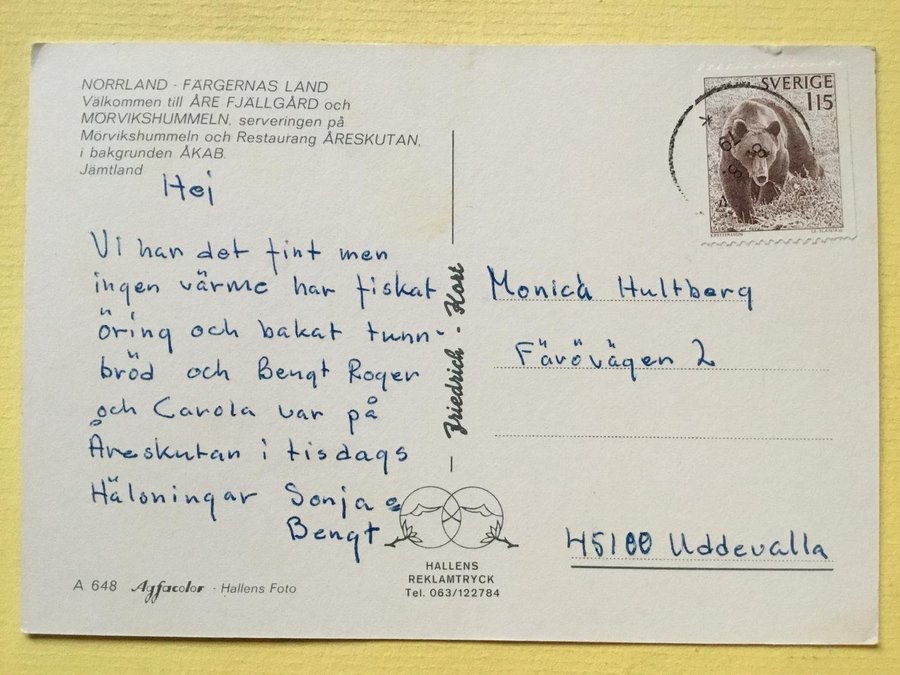 NORRLAND - FÄRGERNAS LAND
Välkommen till ÅRE FJÄLLGÅRD och
MÖRVIKSHUMMELN, serveringen på
Mörvikshummeln och Restaurang ÅRESKUTAN,
i bakgrunden ÅKAB.
Jämtland
Hej
Vi har det fint men
ingen värme har fiskat
öring och bakat tunn-
bröd och Bengt Roger
och Carola var på
Åreskutan i tisdags
Hälsningar Sonja o
Bengt
A 648 Agfacolor - Hallens Foto
Friedrich - Kort
HALLENS
REKLAMTRYCK
Tel. 063/122784
SVERIGE
115
Monica Hultberg
Färövägen 2
45100 Uddevalla